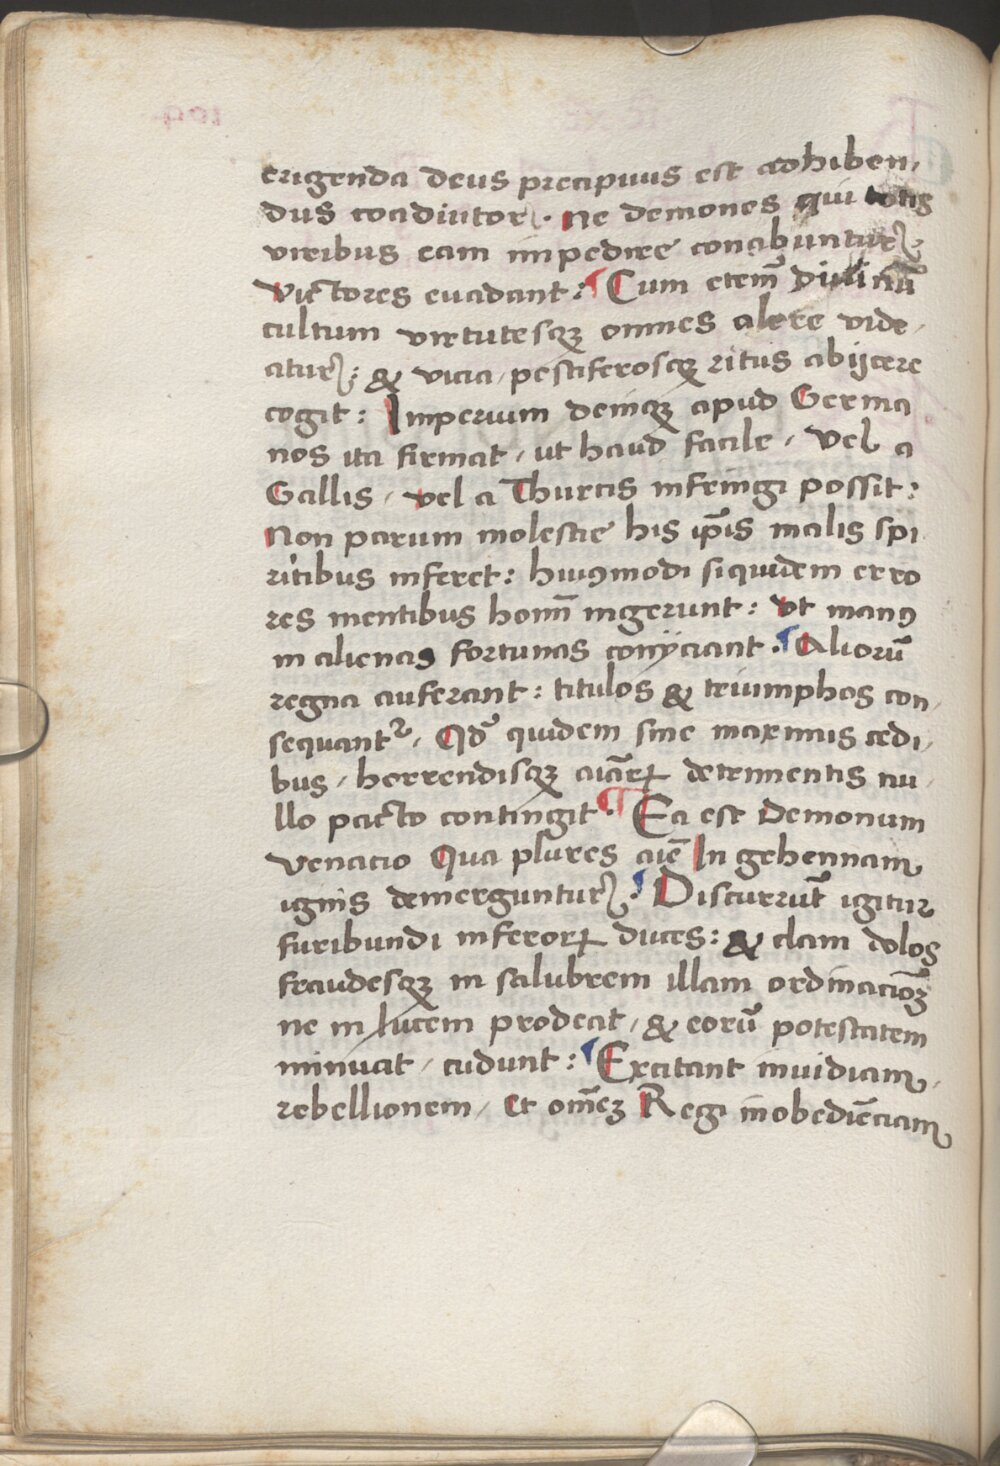 erigenda deus precipuus est adhiben,
dus coadiutor. Ne demones qui totis
viribus eam impedire conabuntur:
victores euadant: ¶ Cum etem̄ diuinū
cultum virtutesqꝫ omnes alere vide,
atur: & vicia, pestiferosqꝫ ritus abijcere
cogit: Imperium deniqꝫ apud Germa
nos ita firmat, ut haud facile, vel a
Gallis, vel a Thurcis infringi possit:
Non parum molestie his ip̄is malis spi
ritibus inferet: huiꝰmodi siquidem erro
res mentibus homī ingerunt: vt manꝰ
in alienas fortunas conijciant. ¶ Aliorū
regna auferant: titulos & triumphos con,
sequant᷑. Qd̄ quidem sine maximis cedi,
bus, horrendisqꝫ aīarꝝ detrimentis nu,
llo pacto contingit. ¶ Ea est Demonum
venacio Qua plures aīe In gehennam
ignis demerguntur. ¶ Discurrūt igitur
furibundi inferorꝝ duces: & clam dolos
fraudesqꝫ in salubrem illam ordinacionē
ne in lucem prodeat, & eorū potestatem
minuat, cudunt: ¶ Excitant inuidiam,
rebellionem, et om̄eꝫ Regi inobediēciam